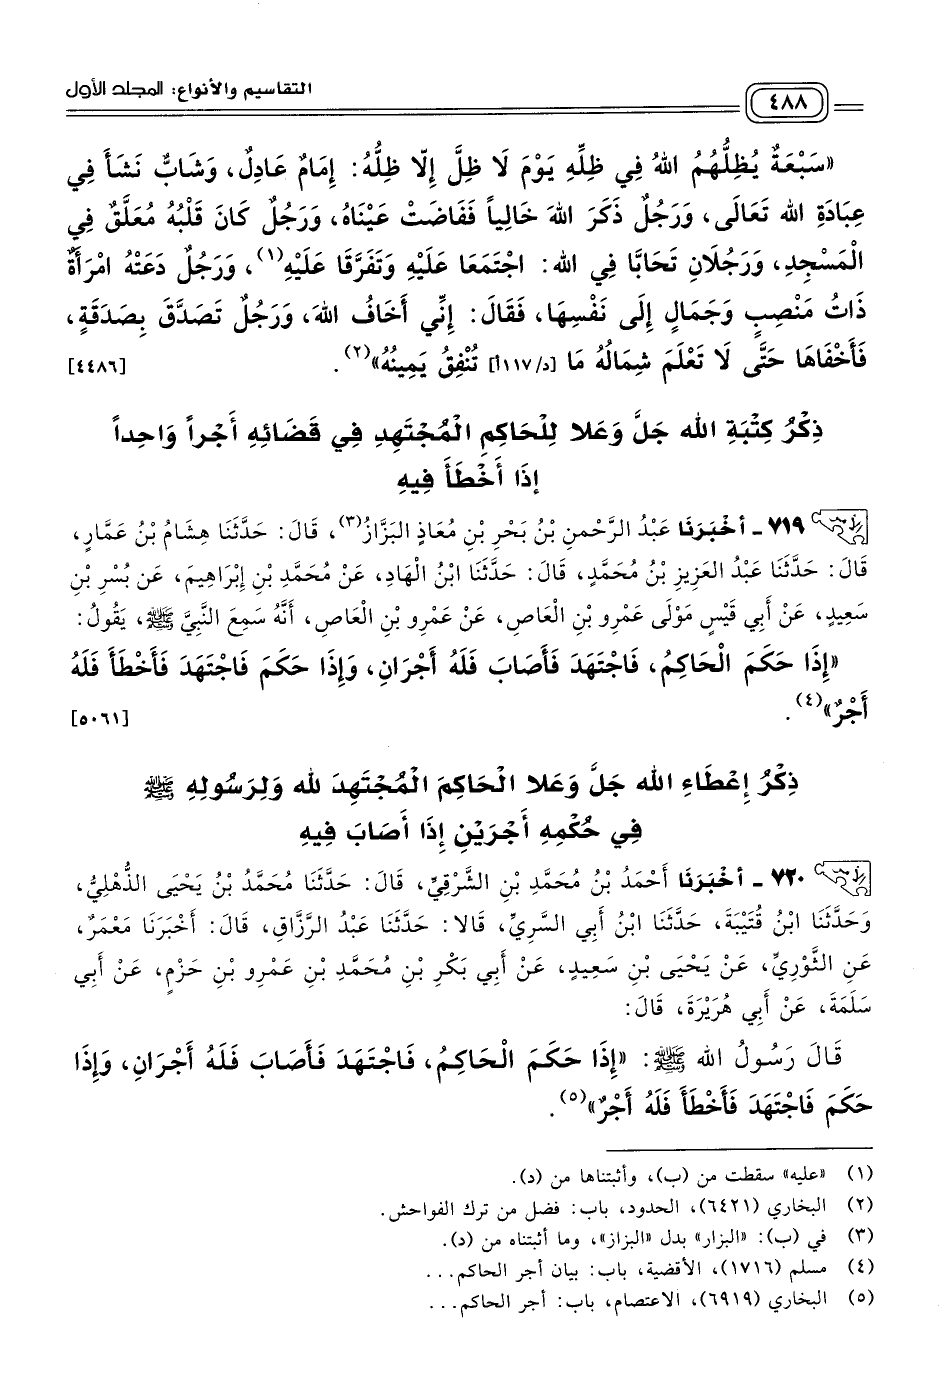 ٤٨٨ التقاسيم والأنواع: المجلد الأول
«سَبْعَةٌ يُظِلُّهُمُ اللهُ فِي ظِلِّهِ يَوْمَ لَا ظِلَّ إِلَّا ظِلُّهُ: إِمَامٌ عَادِلٌ، وَشَابٌّ نَشَأَ فِي
عِبَادَةِ اللهِ تَعَالَى، وَرَجُلٌ ذَكَرَ اللهَ خَالِياً فَفَاضَتْ عَيْنَاهُ، وَرَجُلٌ كَانَ قَلْبُهُ مُعَلَّقٌ فِي
الْمَسْجِدِ، وَرَجُلَانِ تَحَابَّا فِي اللهِ: اجْتَمَعَا عَلَيْهِ وَتَفَرَّقَا عَلَيْهِ(١)، وَرَجُلٌ دَعَتْهُ امْرَأَةٌ
ذَاتُ مَنْصِبٍ وَجَمَالٍ إِلَى نَفْسِهَا، فَقَالَ: إِنِّي أَخَافُ اللهَ، وَرَجُلٌ تَصَدَّقَ بِصَدَقَةٍ،
فَأَخْفَاهَا حَتَّى لَا تَعْلَمَ شِمَالُهُ مَا [د/١١٧أ] تُنْفِقُ يَمِينُهُ»(٢). [٤٤٨٦]
ذِكْرُ كِتْبَةِ اللهِ جَلَّ وَعَلا لِلْحَاكِمِ الْمُجْتَهِدِ فِي قَضَائِهِ أَجْراً وَاحِداً
إِذَا أَخْطَأَ فِيهِ
٧١٩ - أَخْبَرَنَا عَبْدُ الرَّحْمنِ بْنُ بَحْرِ بْنِ مُعَاذٍ البَزَّازُ(٣)، قَالَ: حَدَّثَنَا هِشَامُ بْنُ عَمَّارٍ،
قَالَ: حَدَّثَنَا عَبْدُ العَزِيزِ بْنُ مُحَمَّدٍ، قَالَ: حَدَّثَنَا ابْنُ الْهَادِ، عَنْ مُحَمَّدِ بْنِ إِبْرَاهِيمَ، عَن بُسْرِ بْنِ
سَعِيدٍ، عَنْ أَبِي قَيْسٍ مَوْلَى عَمْرِو بْنِ الْعَاصِ، عَنْ عَمْرِو بْنِ الْعَاصِ، أَنَّهُ سَمِعَ النَّبِيَّ ﷺ، يَقُولُ:
«إِذَا حَكَمَ الْحَاكِمُ، فَاجْتَهَدَ فَأَصَابَ فَلَهُ أَجْرَانِ، وَإِذَا حَكَمَ فَاجْتَهَدَ فَأَخْطَأَ فَلَهُ
أَجْرٌ»(٤). [٥٠٦١]
ذِكْرُ إِعْطَاءِ اللهِ جَلَّ وَعَلا الْحَاكِمَ الْمُجْتَهِدَ للهِ وَلِرَسُولِهِ ﷺ
فِي حُكْمِهِ أَجْرَيْنِ إِذَا أَصَابَ فِيهِ
٧٢٠ - أَخْبَرَنَا أَحْمَدُ بْنُ مُحَمَّدِ بْنِ الشَّرْقِيِّ، قَالَ: حَدَّثَنَا مُحَمَّدُ بْنُ يَحْيَى الذُّهْلِيُّ،
وَحَدَّثَنَا ابْنُ قُتَيْبَةَ، حَدَّثَنَا ابْنُ أَبِي السَّرِيِّ، قَالَا: حَدَّثَنَا عَبْدُ الرَّزَّاقِ، قَالَ: أَخْبَرَنَا مَعْمَرٌ،
عَنِ الثَّوْرِيِّ، عَنْ يَحْيَى بْنِ سَعِيدٍ، عَنْ أَبِي بَكْرِ بْنِ مُحَمَّدِ بْنِ عَمْرِو بْنِ حَزْمٍ، عَنْ أَبِي
سَلَمَةَ، عَنْ أَبِي هُرَيْرَةَ، قَالَ:
قَالَ رَسُولُ اللهِ ﷺ: «إِذَا حَكَمَ الْحَاكِمُ، فَاجْتَهَدَ فَأَصَابَ فَلَهُ أَجْرَانِ، وَإِذَا
حَكَمَ فَاجْتَهَدَ فَأَخْطَأَ فَلَهُ أَجْرٌ»(٥).
(١) «عليه» سقطت من (ب)، وأثبتناها من (د).
(٢) البخاري (٦٤٢١)، الحدود، باب: فضل من ترك الفواحش.
(٣) في (ب): «البزار» بدل «البزاز»، وما أثبتناه من (د).
(٤) مسلم (١٧١٦)، الأقضية، باب: بيان أجر الحاكم...
(٥) البخاري (٦٩١٩)، الاعتصام، باب: أجر الحاكم...